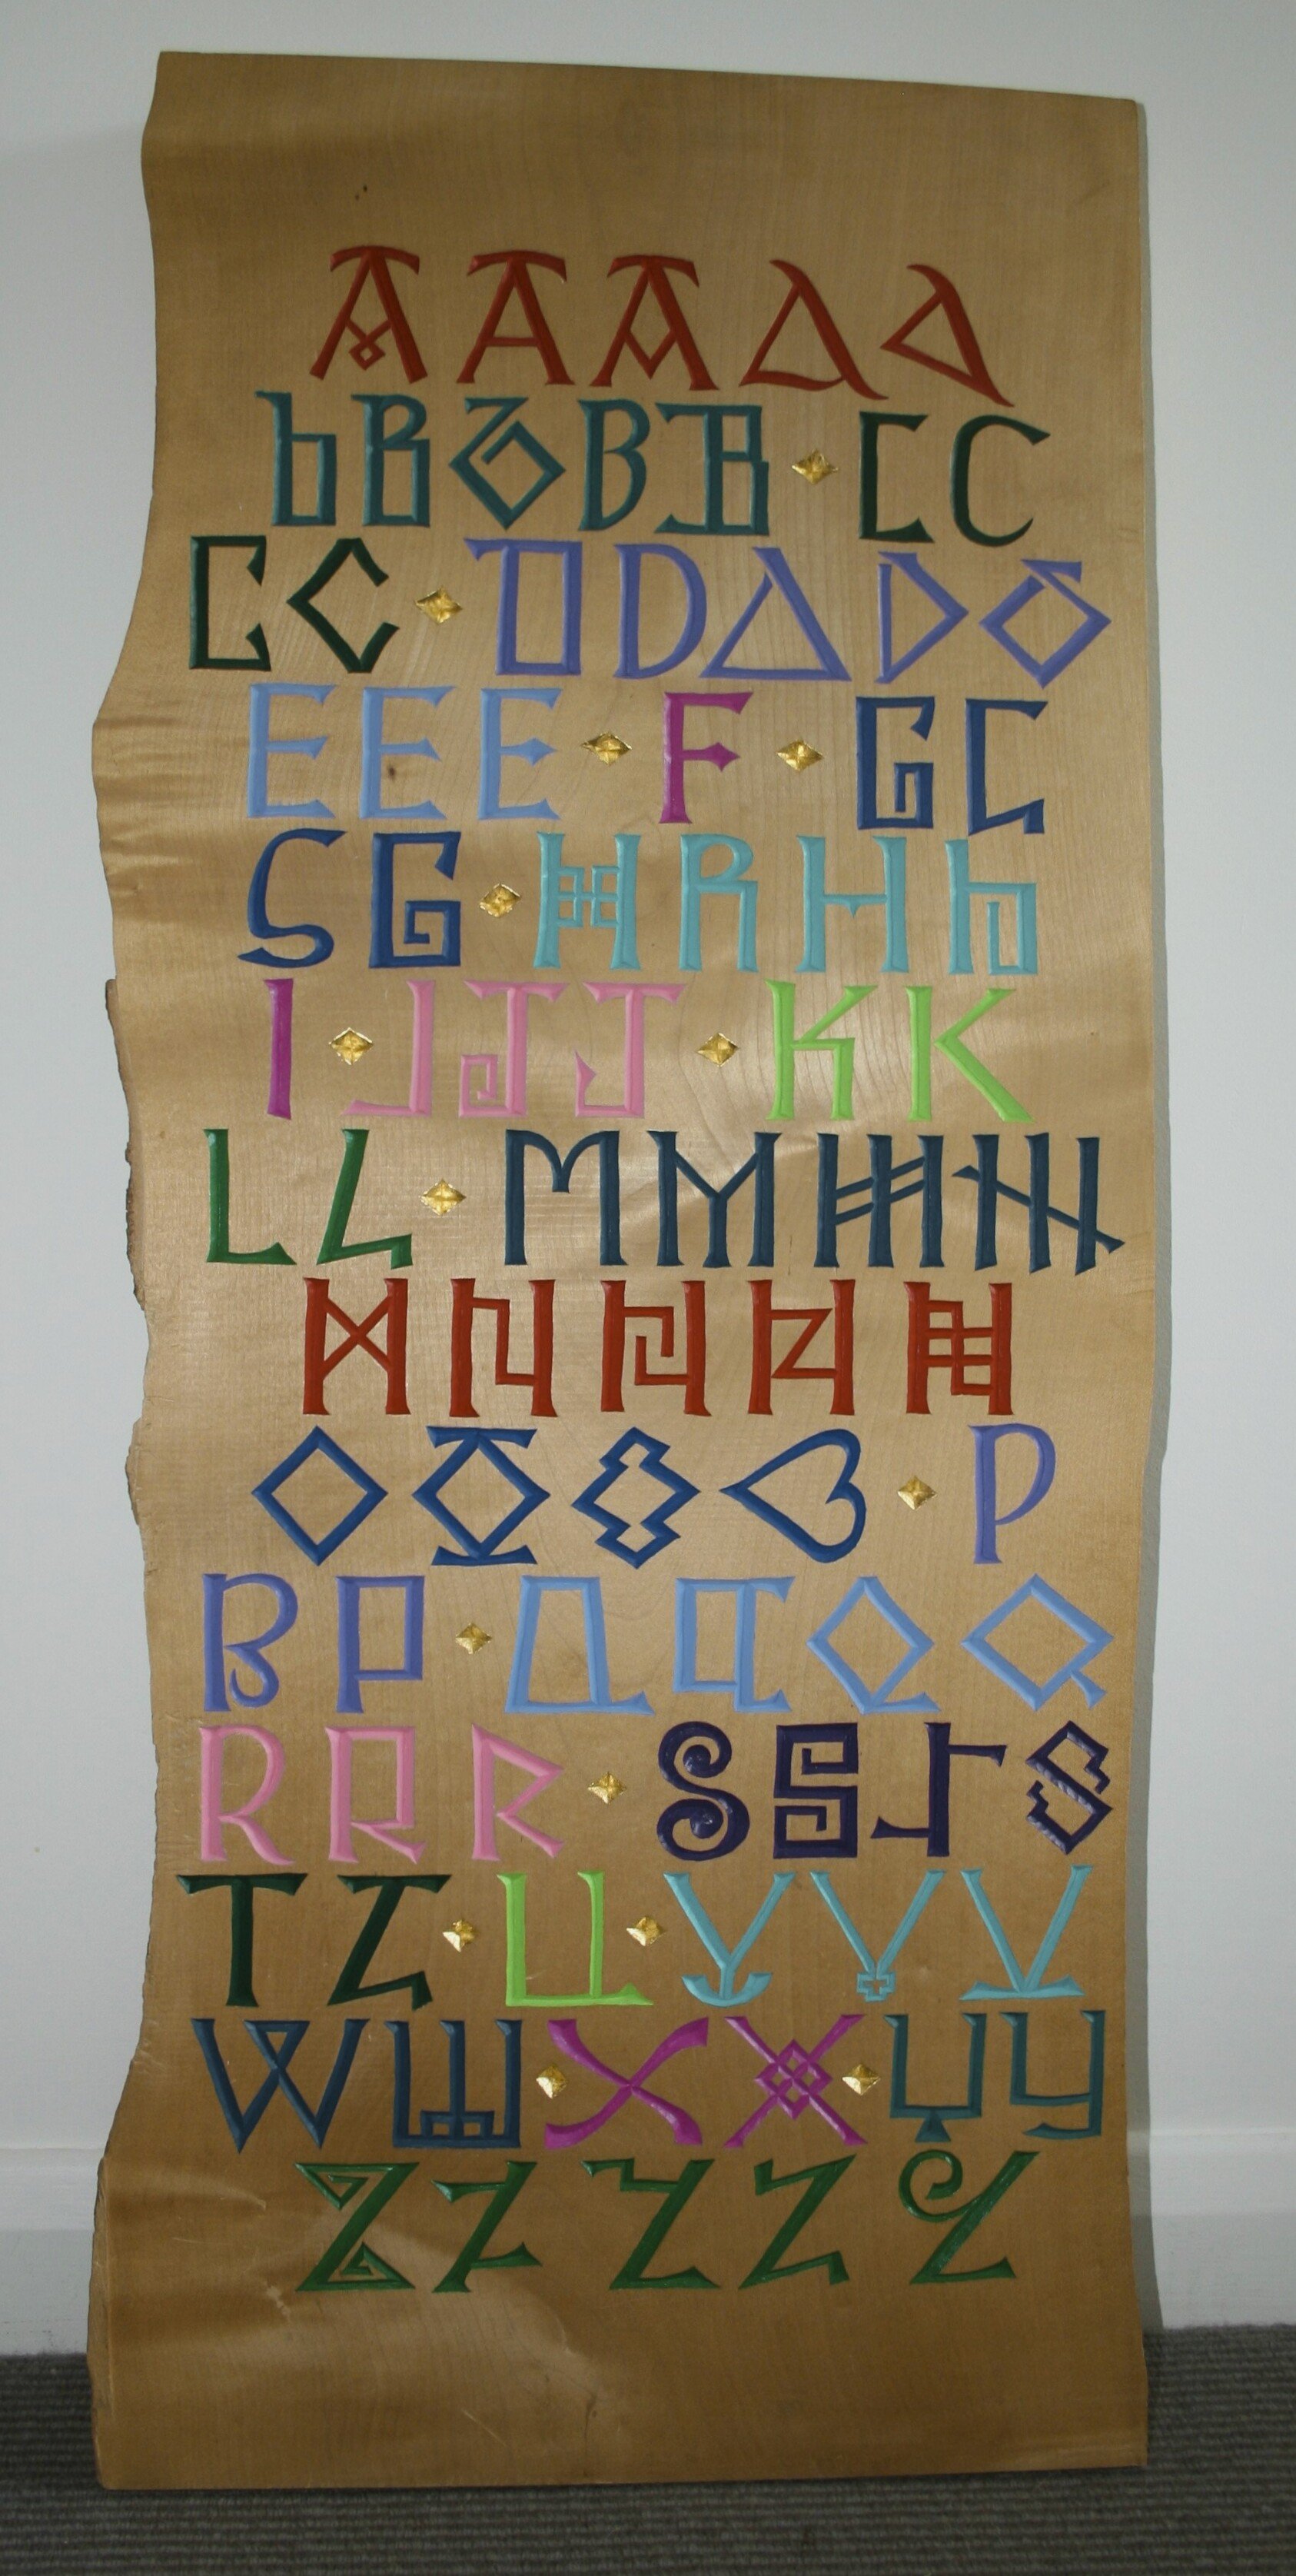 AAAAA
BBBBB · CC
CC · DDDDD
EEE · F · GG
GG · HHHH
I · JJJ · KK
LL · MMMM
NNNNN
OOOO · P
PP · QQQQ
RRR · SSSS
TT · U · VVV
WW · XX · YY
ZZZZZ